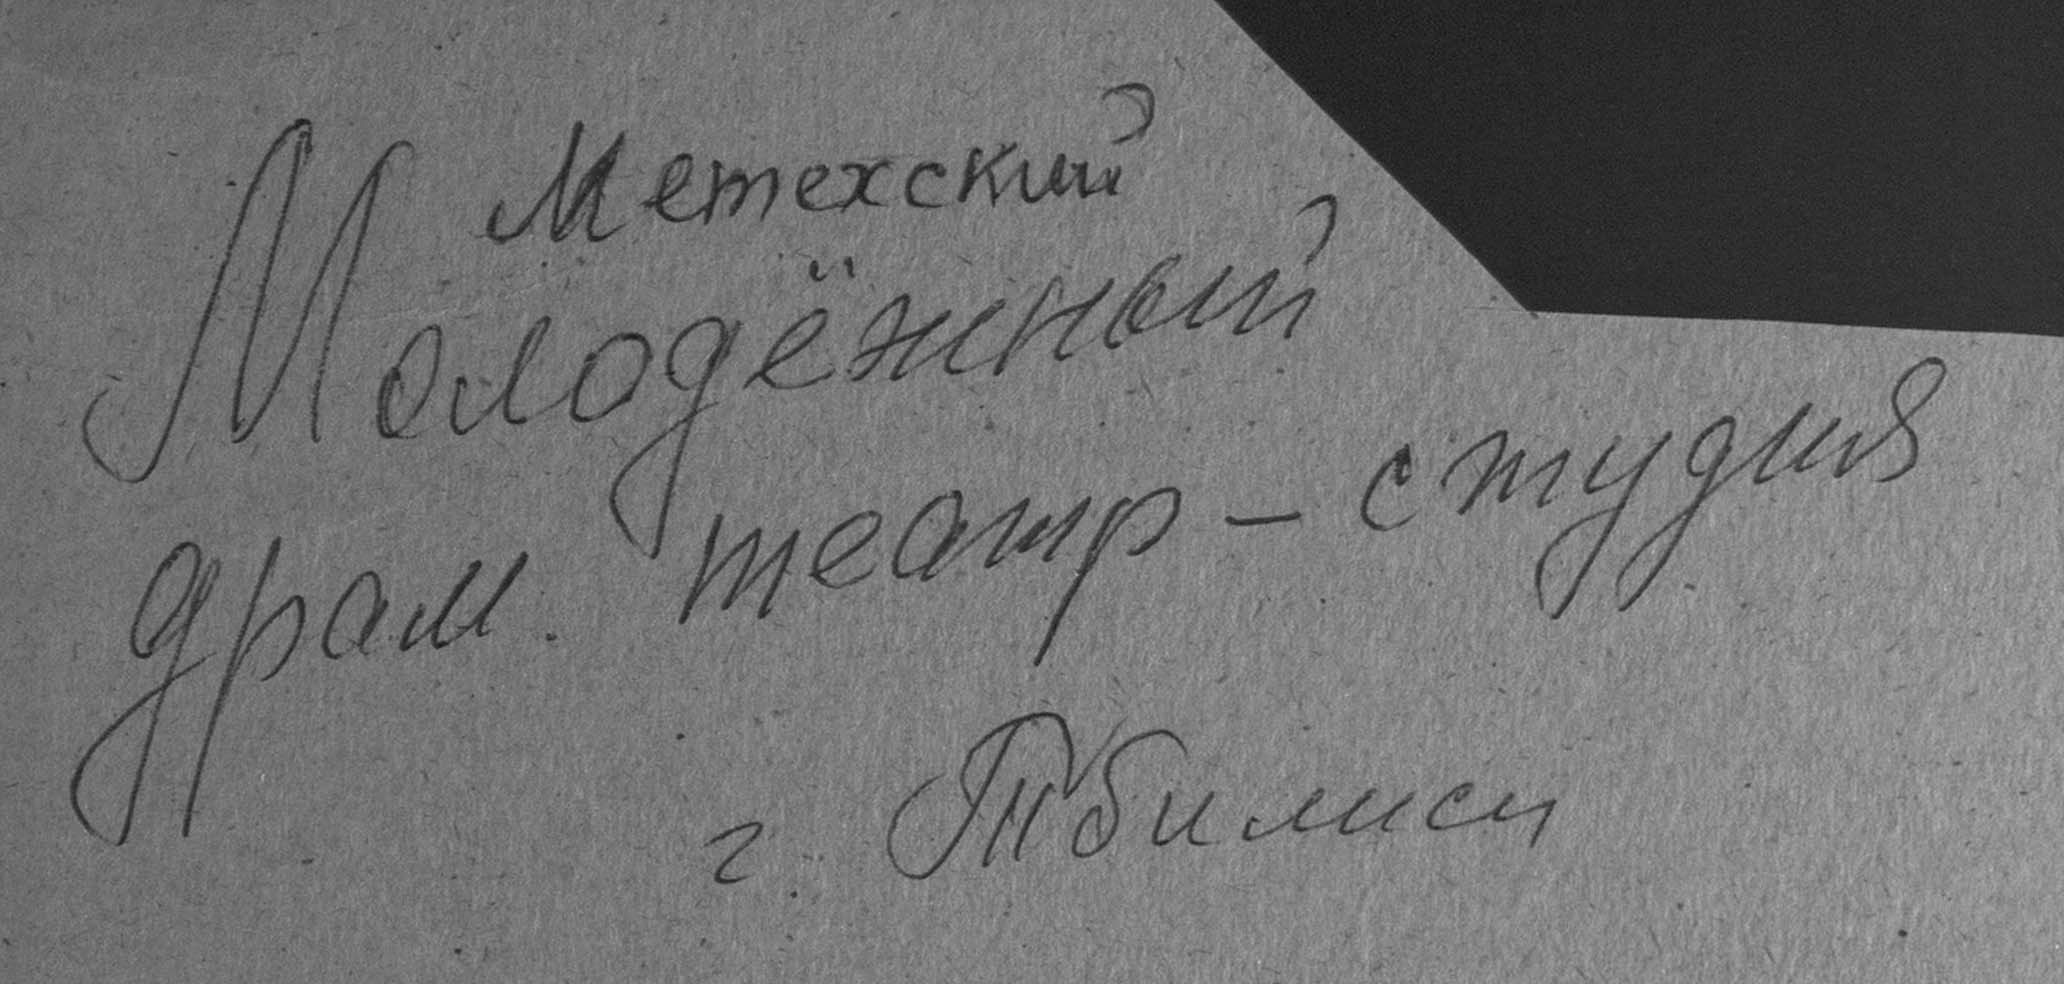 Метехский
Молодёжный
драм. театр - студия
г. Тбилиси